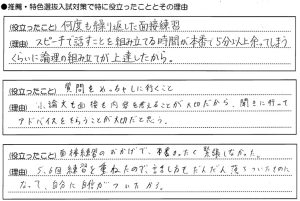 ●推薦・特色選抜入試対策で特に役立ったこととその理由
(役立ったこと) 何度も繰り返した面接練習
(理由) スピーチで話すことを組み立てる時間が本番で5分以上余ってしまう
くらいに論理の組み立てが上達したから。
(役立ったこと) 質問をめちゃくちゃに行くこと
(理由) 小論文も面接も内容を考えることが大切だから、聞きに行って
アドバイスをもらうことが大切だと思う。
(役立ったこと) 面接練習のおかげで、本番まったく緊張しなかった。
(理由) 5,6回練習を重ねたので、話し方もだんだん落ちついたものに
なって、自分に自信がついたから。